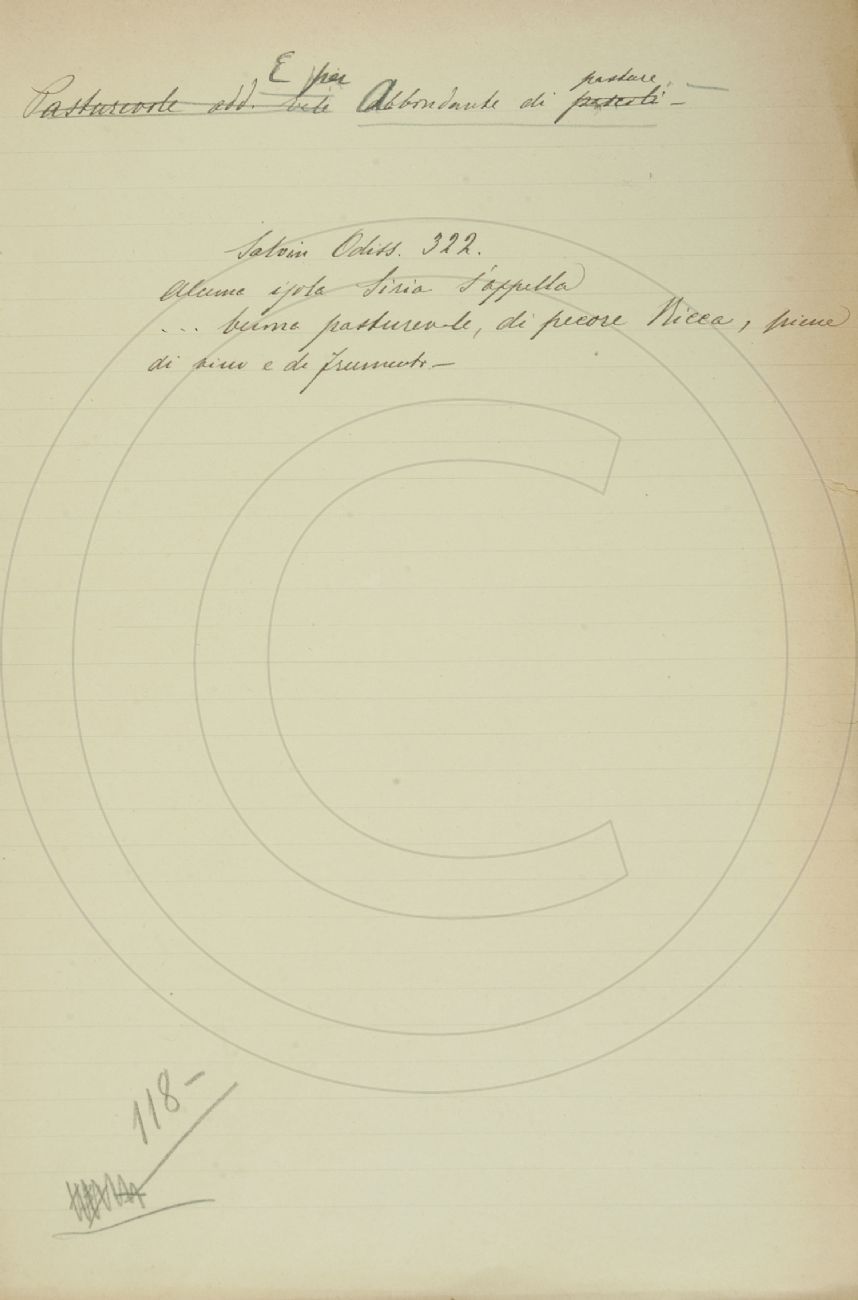 E per pasture
Pasturevole add. vale Abbondante di pascoli –
Salvin Odiss. 322.
Alcuna isola Siria s'appella
... buona pasturevole, di pecore Ricca, piena
di vino e di frumento –
118 –